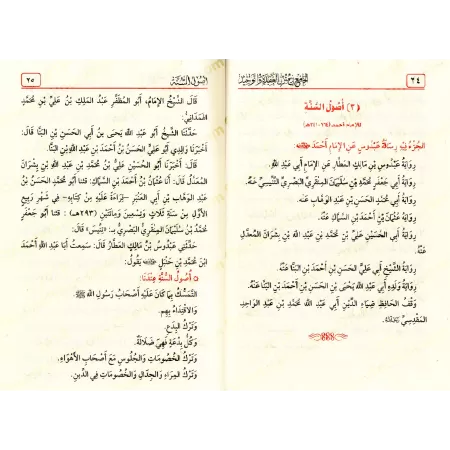 ٢٤
الجامع في متون العقيدة والتوحيد
(٢) أصُولُ السُّنَّة
للإمام أحمد (١٦٤-٢٤١هـ)
الجُزءُ فِيهِ رِسَالَةُ عَبْدُوسٍ عَنِ الإِمَامِ أَحْمَدَ
رِوَايَةُ عَبْدُوسِ بْنِ مَالِكٍ العَطَّارِ عَنِ الإِمَامِ أَبِي عَبْدِ اللهِ.
رِوَايَةُ أَبِي جَعْفَرٍ مُحَمَّدِ بْنِ سُلَيْمَانَ المِنْقَرِيِّ البَصْرِيِّ التِّنِّيسِيِّ عَنْهُ.
رِوَايَةُ أَبِي مُحَمَّدٍ الحَسَنِ بْنِ عَبْدِ الوَهَّابِ عَنْهُ.
رِوَايَةُ عُثْمَانَ بْنِ أَحْمَدَ بْنِ السَّمَّاكِ عَنْهُ.
رِوَايَةُ أَبِي الحُسَيْنِ عَلِيِّ بْنِ مُحَمَّدِ بْنِ عَبْدِ اللهِ بْنِ بِشْرَانَ المُعَدَّلِ
عَنْهُ.
رِوَايَةُ الشَّيْخِ أَبِي عَلِيٍّ الحَسَنِ بْنِ أَحْمَدَ بْنِ البَنَّا عَنْهُ.
رِوَايَةُ وَلَدِهِ أَبِي عَبْدِ اللهِ يَحْيَى بْنِ الحَسَنِ بْنِ أَحْمَدَ بْنِ البَنَّا عَنْهُ.
وَقْفُ الحَافِظِ ضِيَاءِ الدِّينِ أَبِي عَبْدِ اللهِ مُحَمَّدِ بْنِ عَبْدِ الوَاحِدِ
المَقْدِسِيِّ
أصول السنة
٢٥
قَالَ الشَّيْخُ الإِمَامُ، أَبُو المُظَفَّرِ عَبْدُ المَلِكِ بْنُ عَلِيِّ بْنِ مُحَمَّدٍ
الهَمَدَانِيُّ:
حَدَّثَنَا الشَّيْخُ أَبُو عَبْدِ اللهِ يَحْيَى بْنُ أَبِي الحَسَنِ بْنِ البَنَّا قَالَ:
أَخْبَرَنَا وَالِدِي أَبُو عَلِيٍّ الحَسَنُ بْنُ أَحْمَدَ بْنِ عَبْدِ اللهِ بْنِ البَنَّا
أَخْبَرَنَا أَبُو الحُسَيْنِ عَلِيُّ بْنُ مُحَمَّدِ بْنِ عَبْدِ اللهِ بْنِ بِشْرَانَ
المُعَدَّلُ، أَنَا عُثْمَانُ بْنُ أَحْمَدَ بْنِ السَّمَّاكِ: ثنا أَبُو مُحَمَّدٍ الحَسَنُ بْنُ
عَبْدِ الوَهَّابِ بْنِ أَبِي العَنْبَرِ -قِرَاءَةً عَلَيْهِ مِنْ كِتَابِهِ- فِي شَهْرِ رَبِيعٍ
الأَوَّلِ مِنْ سَنَةِ ثَلَاثٍ وَتِسْعِينَ وَمِائَتَيْنِ (٢٩٣هـ): ثنا أَبُو جَعْفَرٍ
مُحَمَّدُ بْنُ سُلَيْمَانَ المِنْقَرِيُّ البَصْرِيُّ بـ «تِنِّيسَ»، قَالَ:
حَدَّثَنِي عَبْدُوسُ بْنُ مَالِكٍ العَطَّارُ قَالَ: سَمِعْتُ أَبَا عَبْدِ اللهِ أَحْمَدَ
بْنَ مُحَمَّدِ بْنِ حَنْبَلٍ يَقُولُ:
أُصُولُ السُّنَّةِ عِنْدَنَا:
التَّمَسُّكُ بِمَا كَانَ عَلَيْهِ أَصْحَابُ رَسُولِ اللهِ ﷺ
وَالاقْتِدَاءُ بِهِم.
وَتَرْكُ البِدَعِ.
وَكُلُّ بِدْعَةٍ فَهِيَ ضَلَالَةٌ.
وَتَرْكُ الخُصُومَاتِ وَالجُلُوسِ مَعَ أَصْحَابِ الأَهْوَاءِ.
وَتَرْكُ المِرَاءِ وَالجِدَالِ وَالخُصُومَاتِ فِي الدِّينِ.